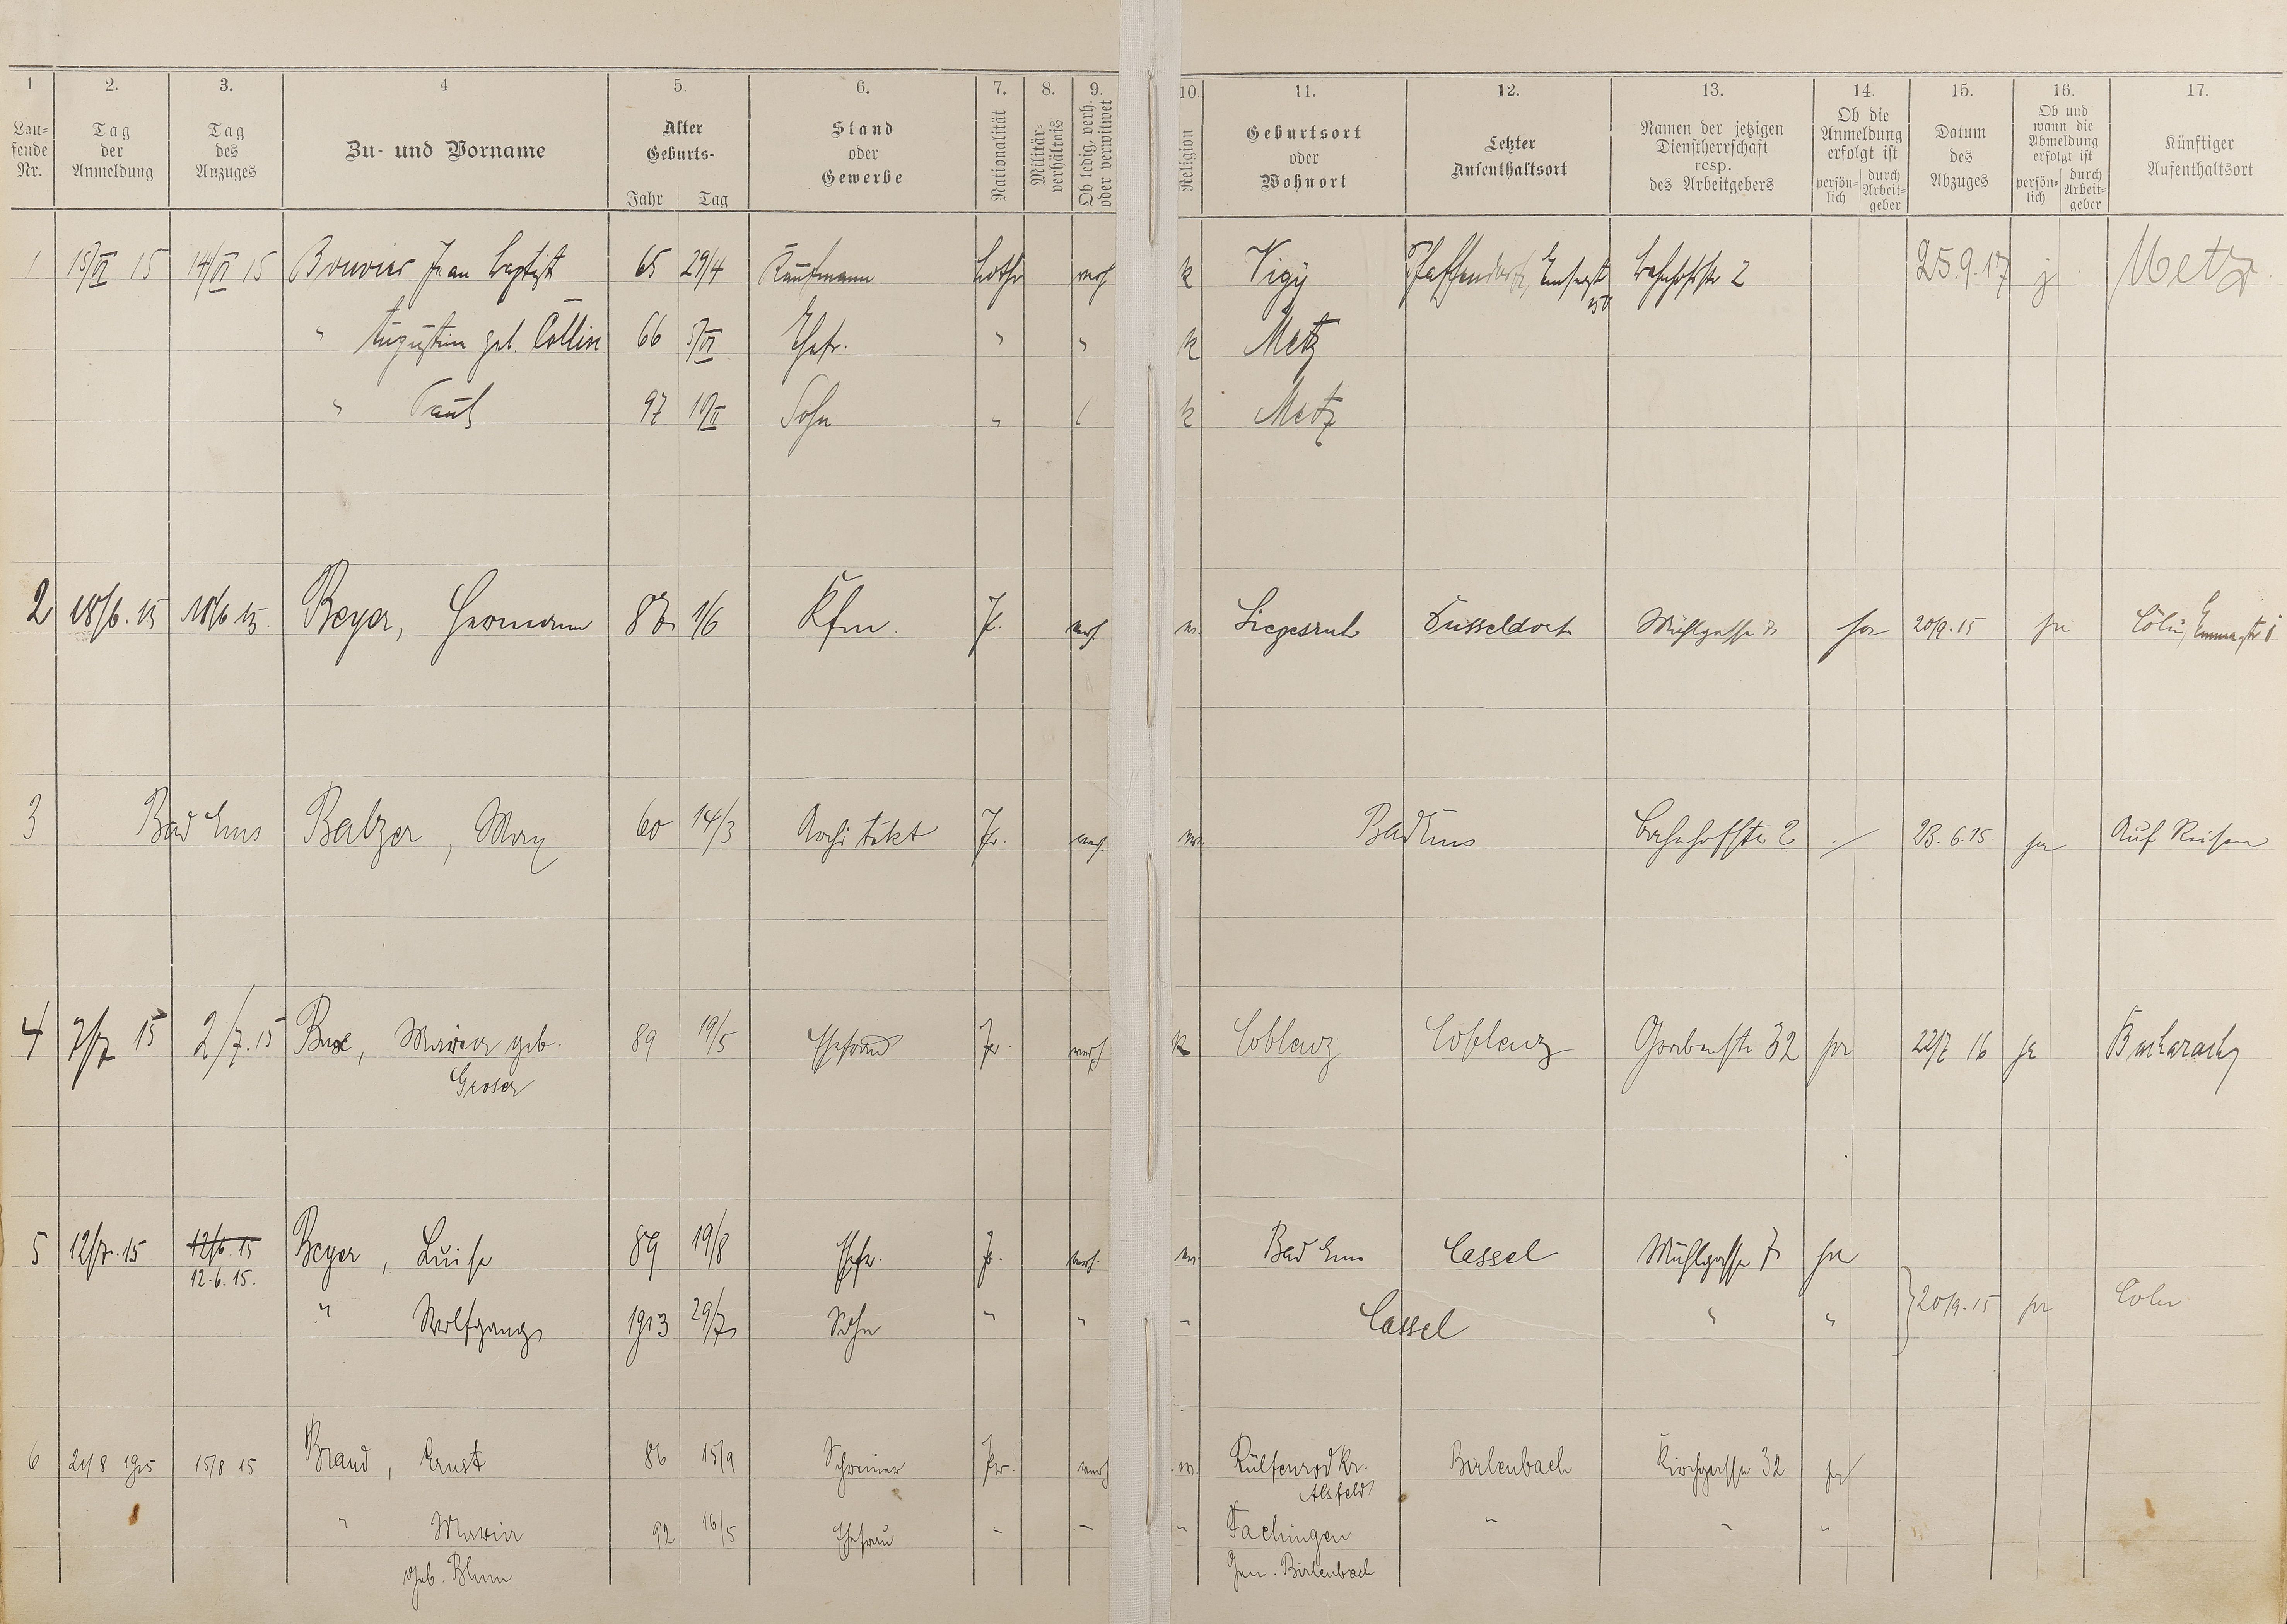 1 2. 3. 4 5. 6. 7. 8. 9. 10. 11. 12. 13. 14. 15. 16. 17.
Lau=
fende
Nr.
Tag
der
Anmeldung
Tag
des
Anzuges
Zu- und Vorname
Alter
Geburts-
Jahr Tag
Stand
oder
Gewerbe
Nationalität
Militär=
verhältnis
Ob ledig, verh.
oder verwitwet
Religion
Geburtsort
oder
Wohnort
Letzter
Aufenthaltsort
Namen der jetzigen
Dienstherrschaft
resp.
des Arbeitgebers
Ob die
Anmeldung
erfolgt ist
persön=
lich
durch
Arbeit=
geber
Datum
des
Abzuges
Ob und
wann die
Abmeldung
erfolgt ist
persön=
lich
durch
Arbeit=
geber
Künftiger
Aufenthaltsort
1 15/VI 15 14/VI 15 Bouvier Jean Baptist 65 29/4 Kaufmann Lothr verh k Vigy Pfaffendorf, Emserstr Bahnhofstr 2 25.9.17 j Metz
" Augustine geb. Collin 66 Ehefr. " " k Metz
" Paul 97 Sohn " l k Metz
2 18/6. 15 18/6 15. Beyer, Hermann 87 1/6 Kfm. Pr. verh. Siegesruh Düsseldorf Mühlgasse 7 ja 20/9.15 ja Cöln, Emmastr
3 Bad Ems Balzer, Max 60 14/3 Architekt Pr. verh. Bad Ems Bahnhofstr 2 ./. 23.6.15. ja Auf Reisen
4 2/7 15 2/7.15 Bux, Maria geb. 89 19/5 Ehefrau Pr. verh k Coblenz Coblenz Grabenstr 32 ja 22/7 16 ja Bacharach
Groser
5 12/7.15 12/6.15 Beyer, Luise 89 19/8 Ehefr. Pr. verh. Bad Ems Cassel Mühlgasse 7 ja
12.6.15.
" Wolfgang 1913 29/7 Sohn " " " Cassel " " 20/9.15 ja Cöln
6 21/8 1915 15/8 15 Brand, Ernst 86 15/9 Schreiner Pr. verh Rülfenrod Kr. Birlenbach Kirchgasse 32 ja
Alsfeld
" Maria 92 16/5 Ehefrau " " " Fachingen " " "
geb. Blum Gem. Birlenbach